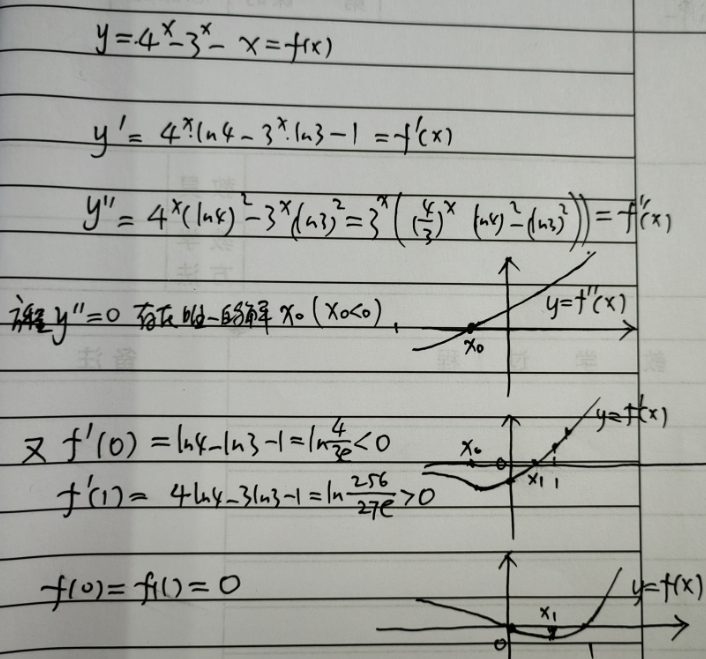 y=4^x-3^x-x=f(x)
y'=4^x·ln4-3^x·ln3-1=f'(x)
y''=4^x(ln4)^2-3^x(ln3)^2=3^x((4/3)^x (ln4)^2-(ln3)^2))=f''(x)
y=f''(x)
方程y''=0 存在唯一的解x₀(x₀<0),
x₀
y=f'(x)
又f'(0)=ln4-ln3-1=ln4/3e<0
x₀ 0 x₁ 1
f'(1)=4ln4-3ln3-1=ln256/27e>0
f(0)=f(1)=0
y=f(x)
x₁
0